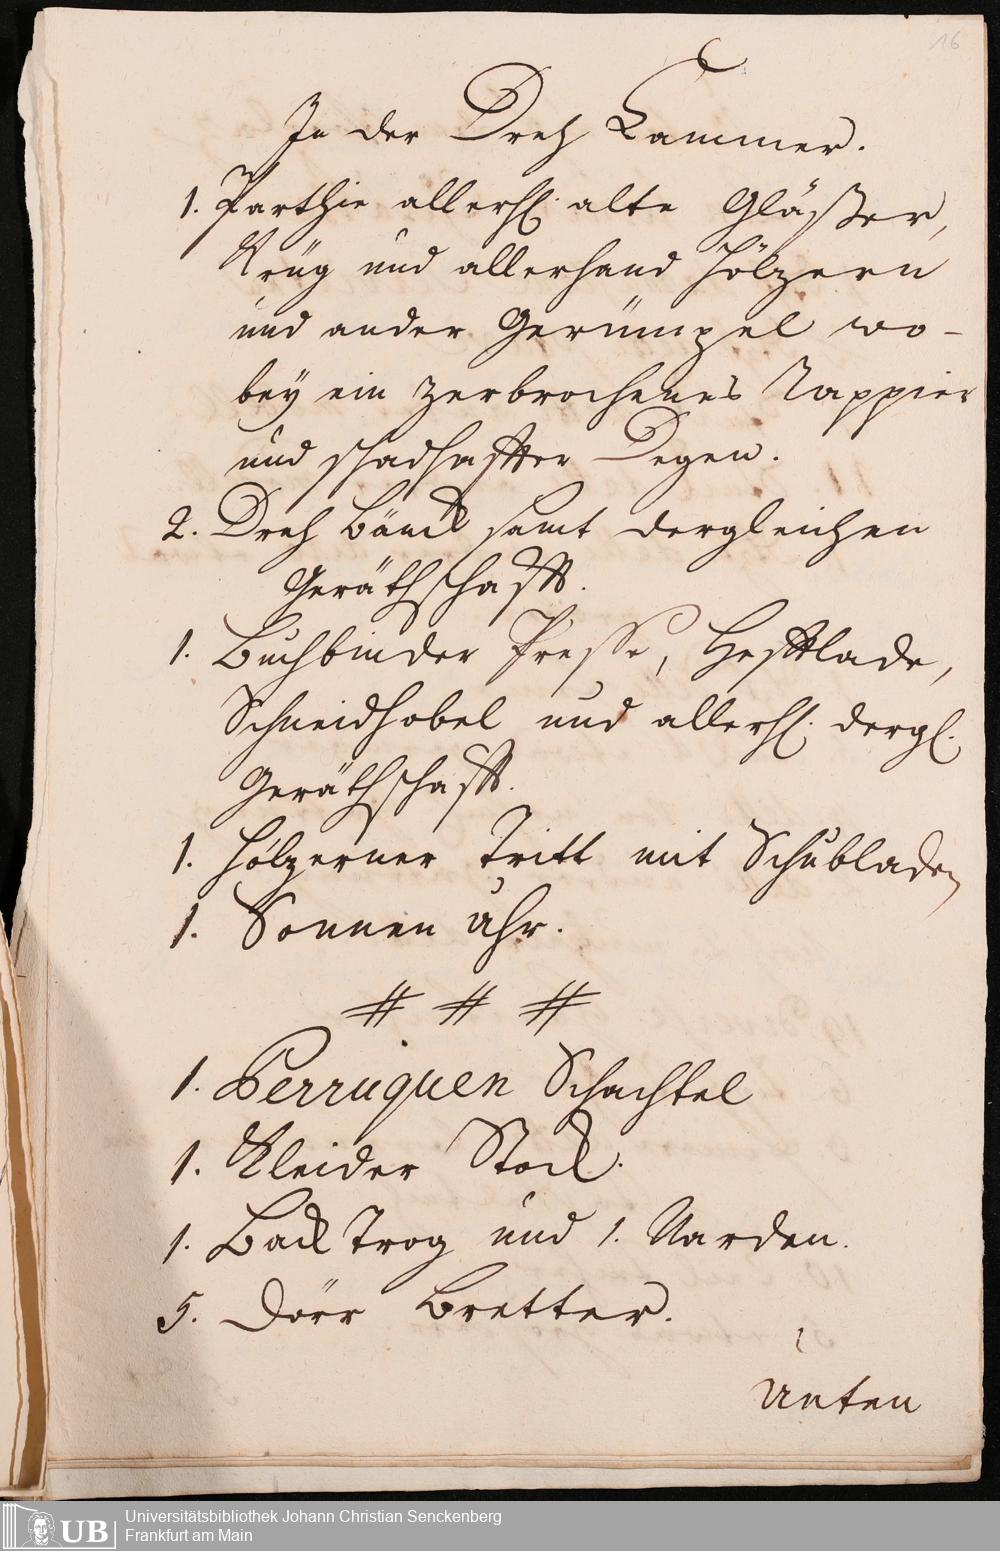 16
In der Dreh Cammer.
1. Parthie allerh. alte Gläßer,
Krüg und allerhand höltzern
und ander Gerümpel wo-
bey ein zerbrochenes Rappier
und schadhaffter Degen.
2. Dreh Bänck samt dergleichen
Geräthschafft.
1. Buchbinder Presse, Hefftlade,
Schneidhobel und allerh. dergl.
Geräthschafft.
1. höltzerner Tritt mit Schubladen
1. Sonnen Uhr.
# # #
1. Perruquen Schachtel
1. Kleider Stock.
1. Back Trog und 1. Narden.
5. Dörr Bretter.
Unten
UB
Universitätsbibliothek Johann Christian Senckenberg
Frankfurt am Main